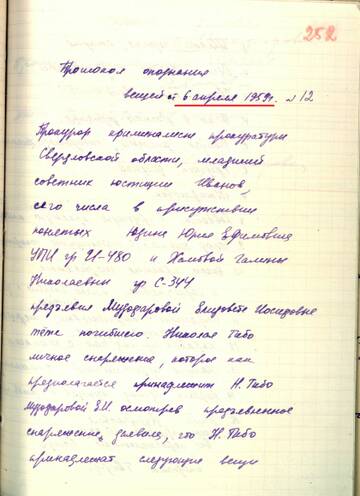 252
Протокол опознания
вещей от 6 апреля 1959г. №12
Прокурор криминалист прокуратуры
Свердловской области, младший
советник юстиции Иванов,
сего числа в присутствии
понятых Юдина Юрия Ефимовича
УПИ гр И-480 и Хомовой Галины
Николаевны гр С-344
предъявил Елизавете Иосифовне
тёте погибшего Николая Тибо
личное снаряжение, которое как
предполагается принадлежит Н. Тибо
Е.И. осмотрев предъявленное
снаряжение, заявила, что Н. Тибо
принадлежат следующие вещи